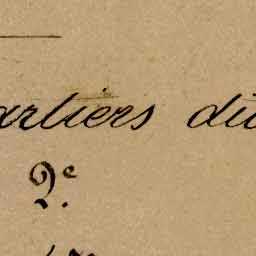 artiers du
2e.